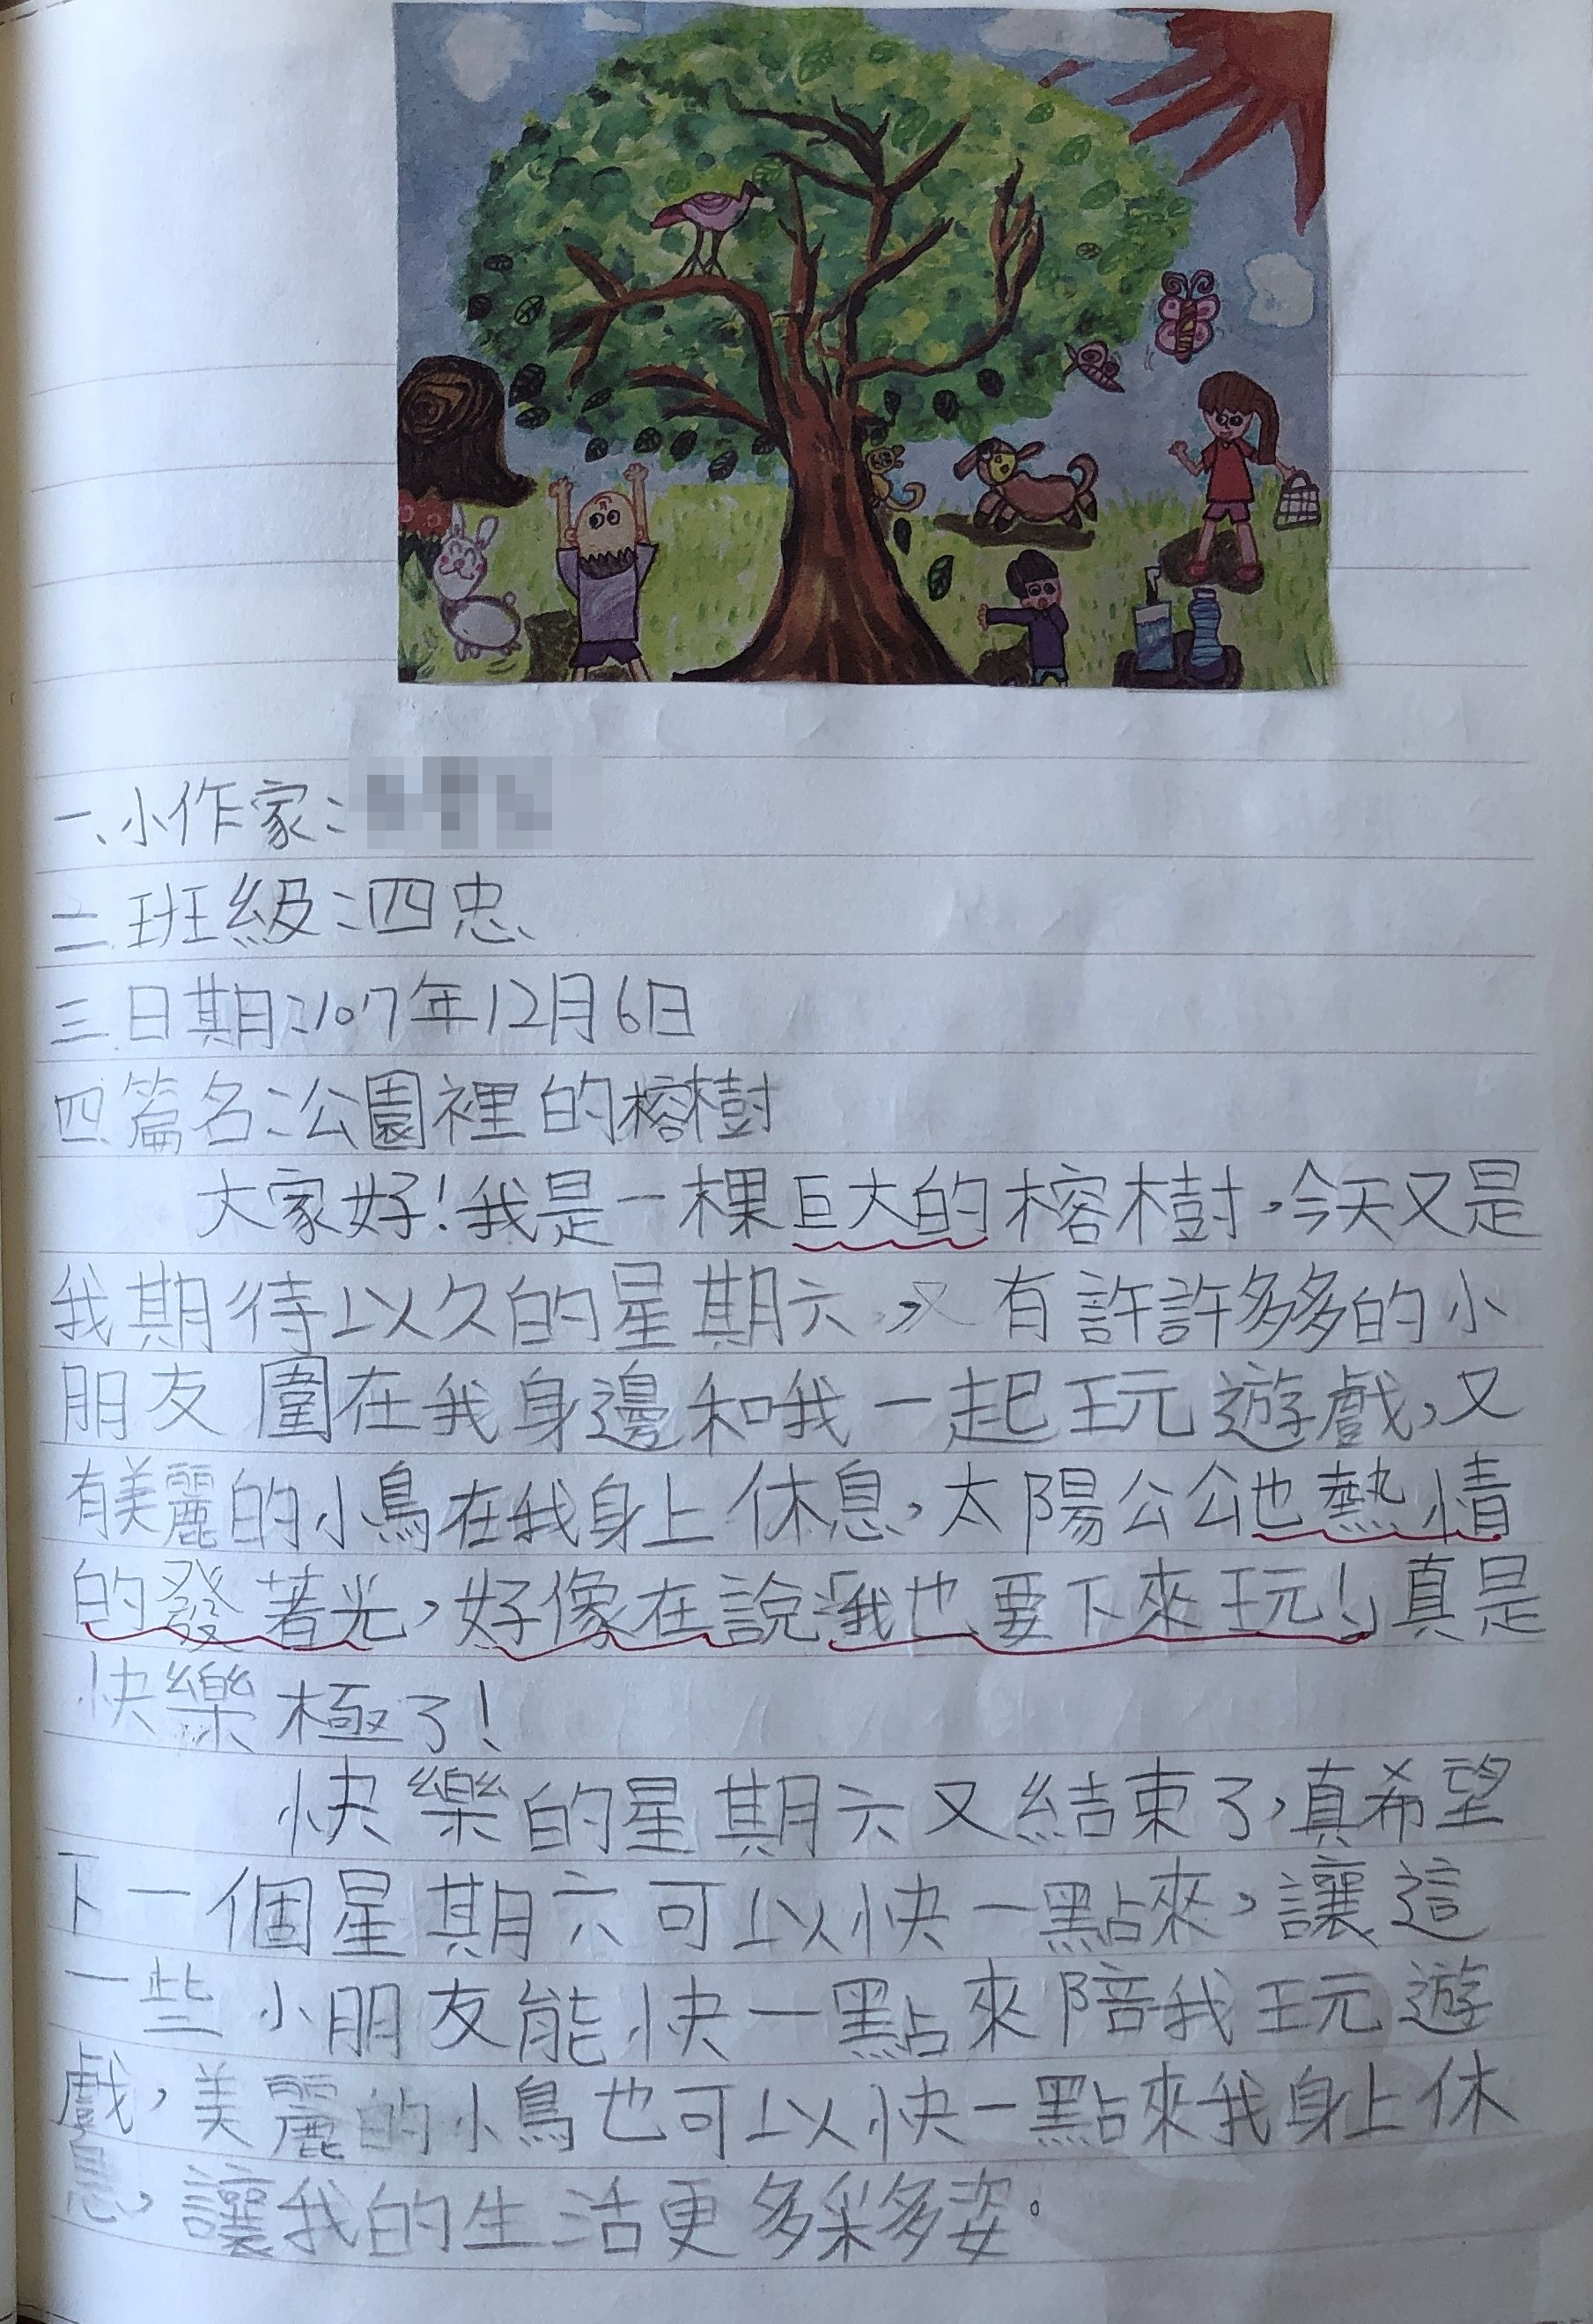 一、小作家：
二、班級：四忠
三、日期：107年12月6日
四、篇名：公園裡的榕樹
大家好！我是一棵巨大的榕樹，今天又是
我期待以久的星期六，又有許許多多的小
朋友圍在我身邊和我一起玩遊戲，又
有美麗的小鳥在我身上休息，太陽公公也熱情
的發著光，好像在說：「我也要下來玩！」真是
快樂極了！
快樂的星期六又結束了，真希望
下一個星期六可以快一點來，讓這
一些小朋友能快一點來陪我玩遊
戲，美麗的小鳥也可以快一點來我身上休
息，讓我的生活更多彩多姿。